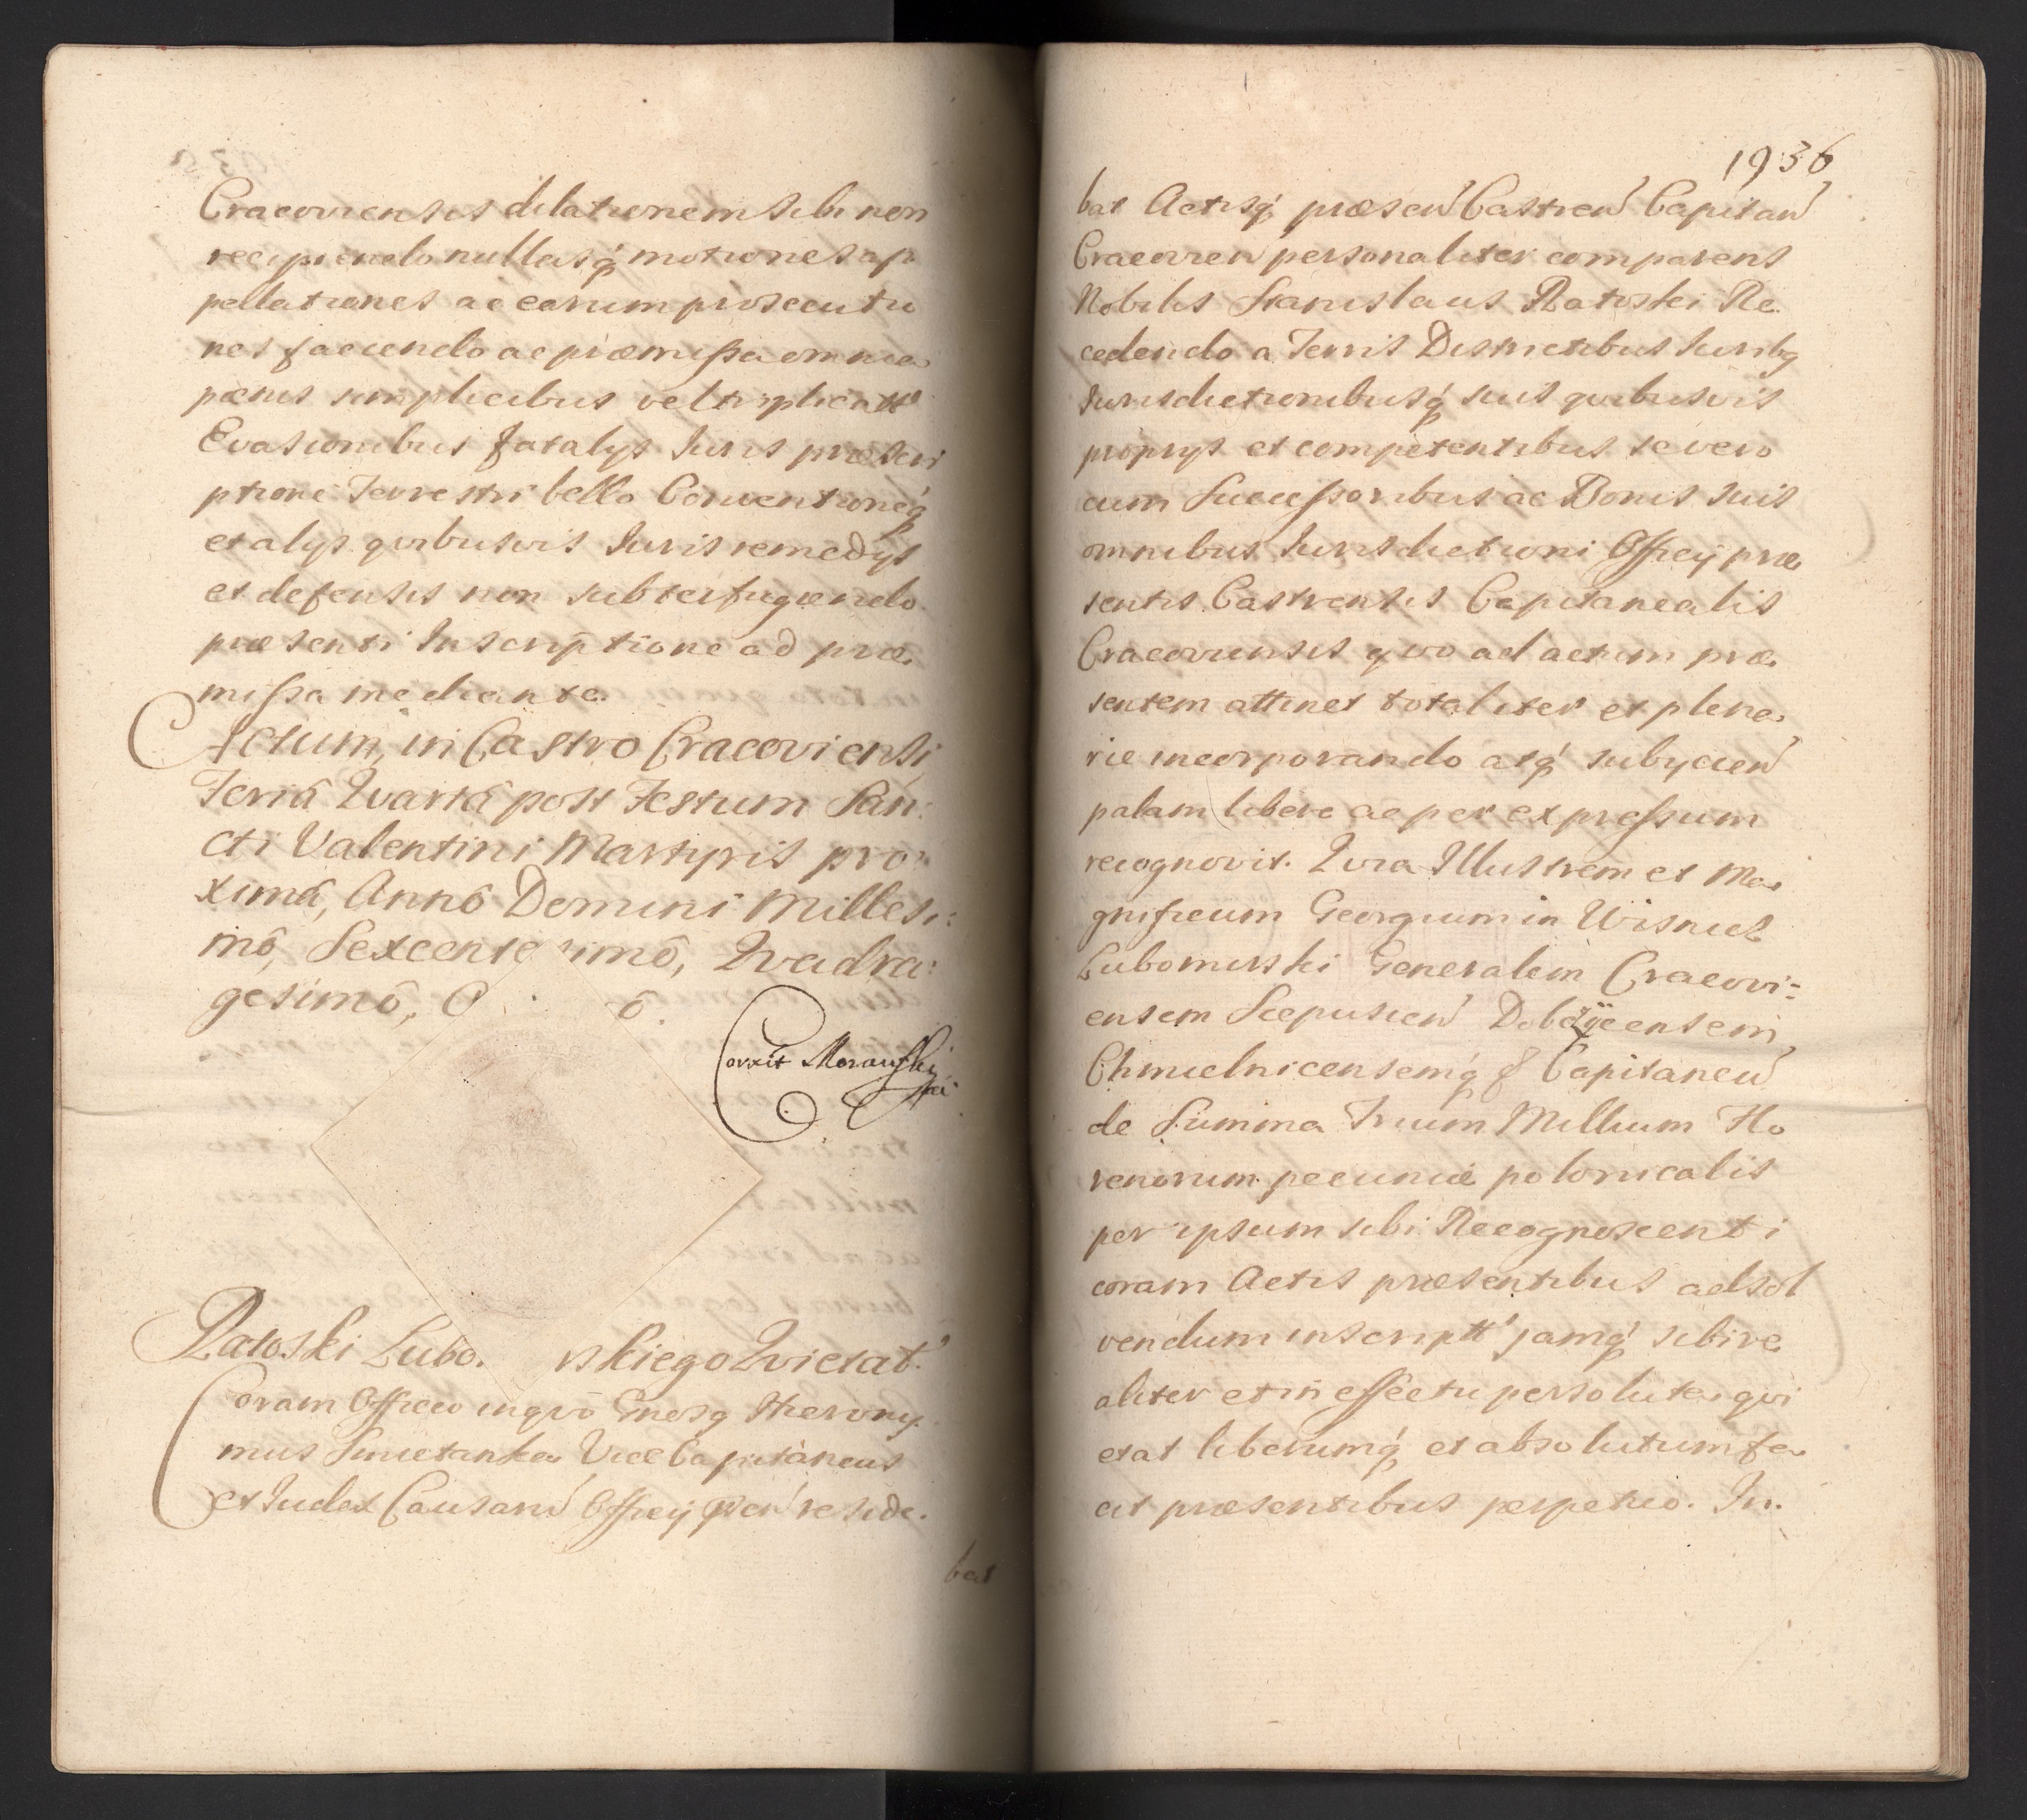 Cracoviensis dilationem sibi non
recipiendo nullasq́ motiones ap
pellationes ac earum prosecutio
nes faciendo ac præmissa omnia
pœnis simplicibus vel triplicatt
Evasionibus fatalys Iuris præscri
ptione Terrestri bello Conventioneq́
et alys qvibusvis Iuris remedys
et defensis non subterfugiendo
præsenti Inscriptione ad præ
missa mediante.
Actum, in Castro Cracoviensi
Feriâ Qvartâ post Festum San:
cti Valentini Martyris pro
ximâ, Annô Domini Millesi:
mô, Sexcente imô, Qvadra:
gesimô, O ô.
Corrit Morawski
Ratoski Lubo. rskiego Qvietat.
Coram Officio inqvo Gnosg Hierony
mus Smietanka Vice Capitaneus
et Iudex Causarū Officij pseñ reside.
bat
1936
bat Actisq́ præseñ Castreñ Capitañ
Cracovień personaliter comparens
Nobilis Stanislaus Ratoski Re
cedendo a Terris Districtibus Iuribg
Iurisdictionibusq́ suis qvibusvis
proprys et competentibus se vero
cum Successoribus ac Bonis suis
omnibus Iurisdictioni Officij præ
sentis Castrensis Capitanealis
Cracoviensis qvo ad actum præ
sentem attinet totaliter et plena
rie incorporando atq́ subycień
palam libere ac per expressum
recognovit. Qvia Illustrem et Ma
gnificum Georgium in Wisnicz
Lubomirski Generalem Cracovi:
ensem Scepusień Dobczÿcensem
Chmielnicensemq́ & Capitaneū
de Summa Trium Millium Flo
renorum pecuniæ polonicalis
per ipsum sibi Recognoscenti
coram Actis præsentibus adsol
vendum inscriptt jamq́ sibi re
aliter et in effectu persoluta, qvi
etat liberumq́ et absolutum fa
cit præsentibus perpetuo. In.